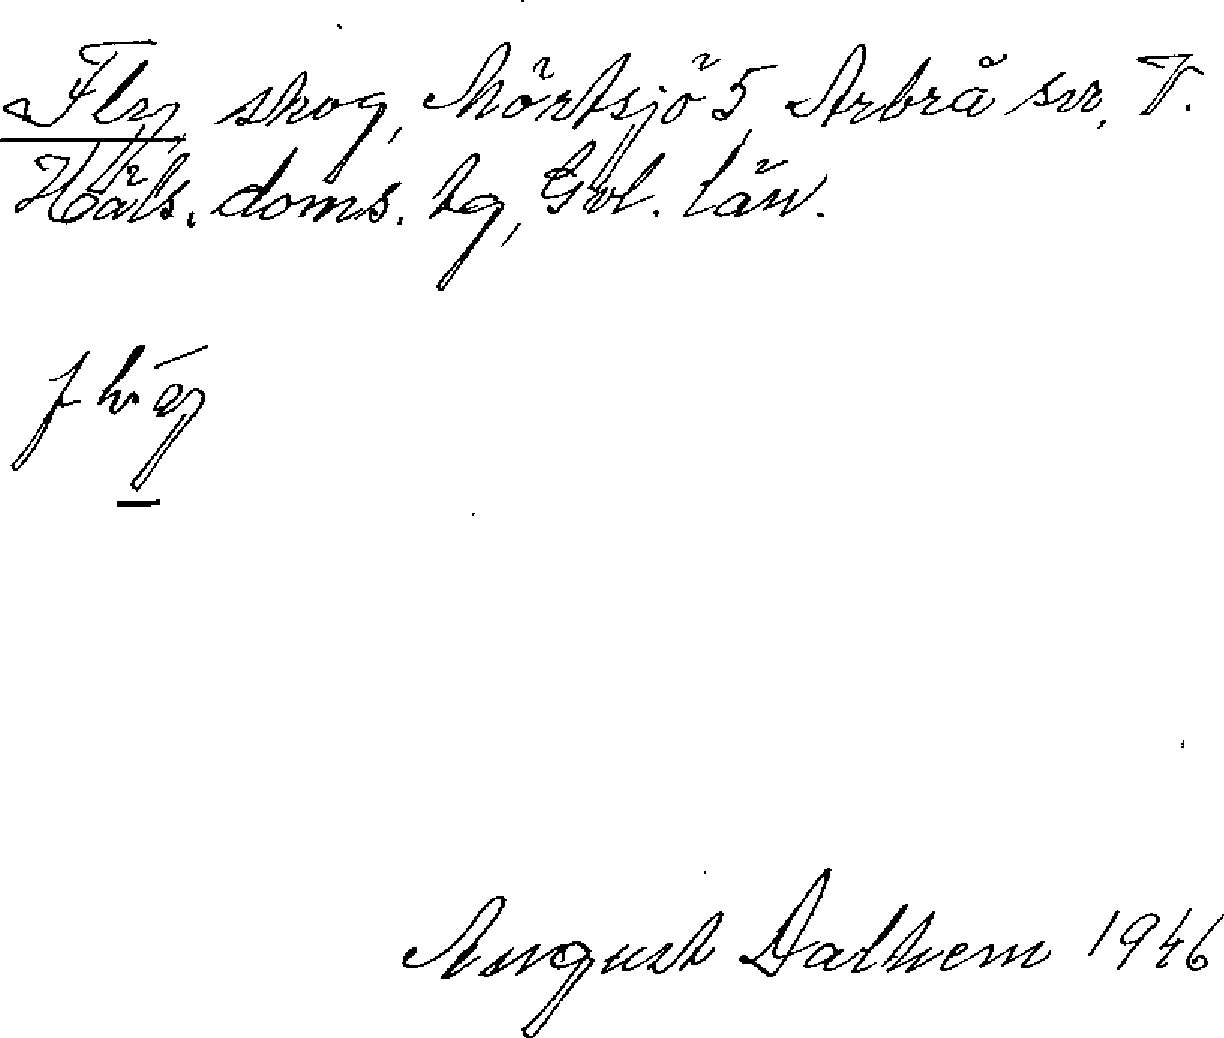 Fly, skog, Mörtsjö 5, Arbrå sn, V.
Häls. doms. tg, Gvl. län.
August Dalhem 1946